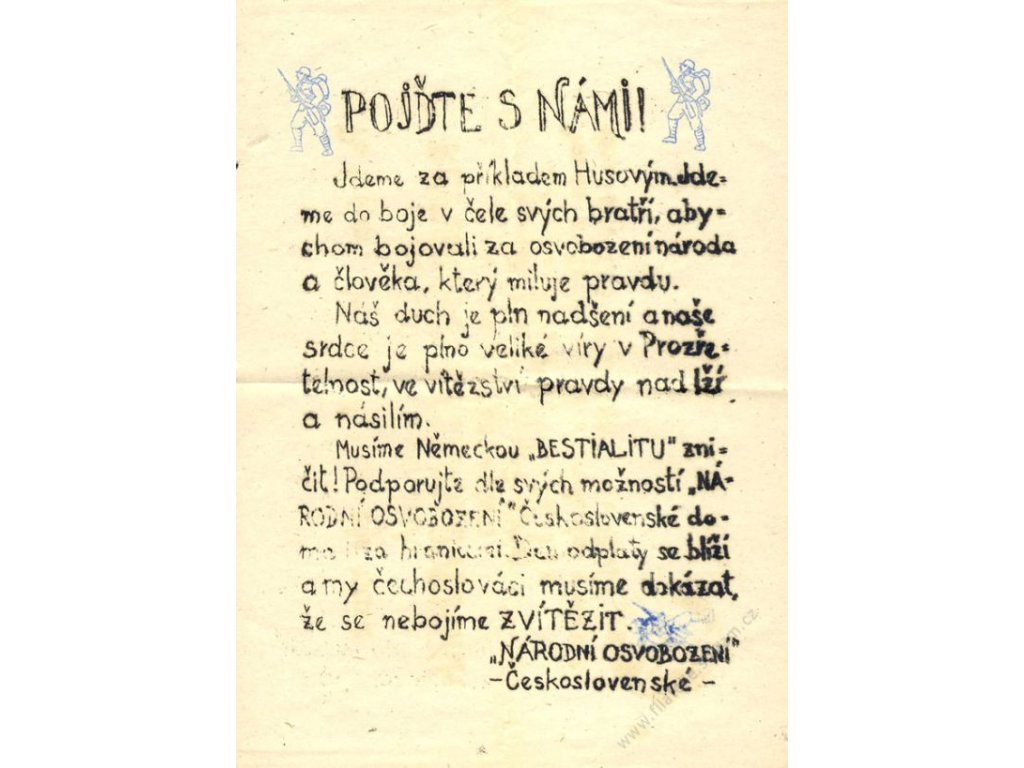 POJĎTE S NÁMI!
Jdeme za příkladem Husovým. Jde-
me do boje v čele svých bratří, aby-
chom bojovali za osvobození národa
a člověka, který miluje pravdu.
Náš duch je pln nadšení a naše
srdce je plno veliké víry v Prozře-
telnost, ve vítězství pravdy nad lží
a násilím.
Musíme Německou „BESTIALITU" zni-
čit! Podporujte dle svých možností „NÁ-
RODNÍ OSVOBOZENÍ" Československé do-
ma i za hranicemi. Den odplaty se blíží
a my čechoslováci musíme dokázat,
že se nebojíme ZVÍTĚZIT.
„NÁRODNÍ OSVOBOZENÍ"
-Československé-